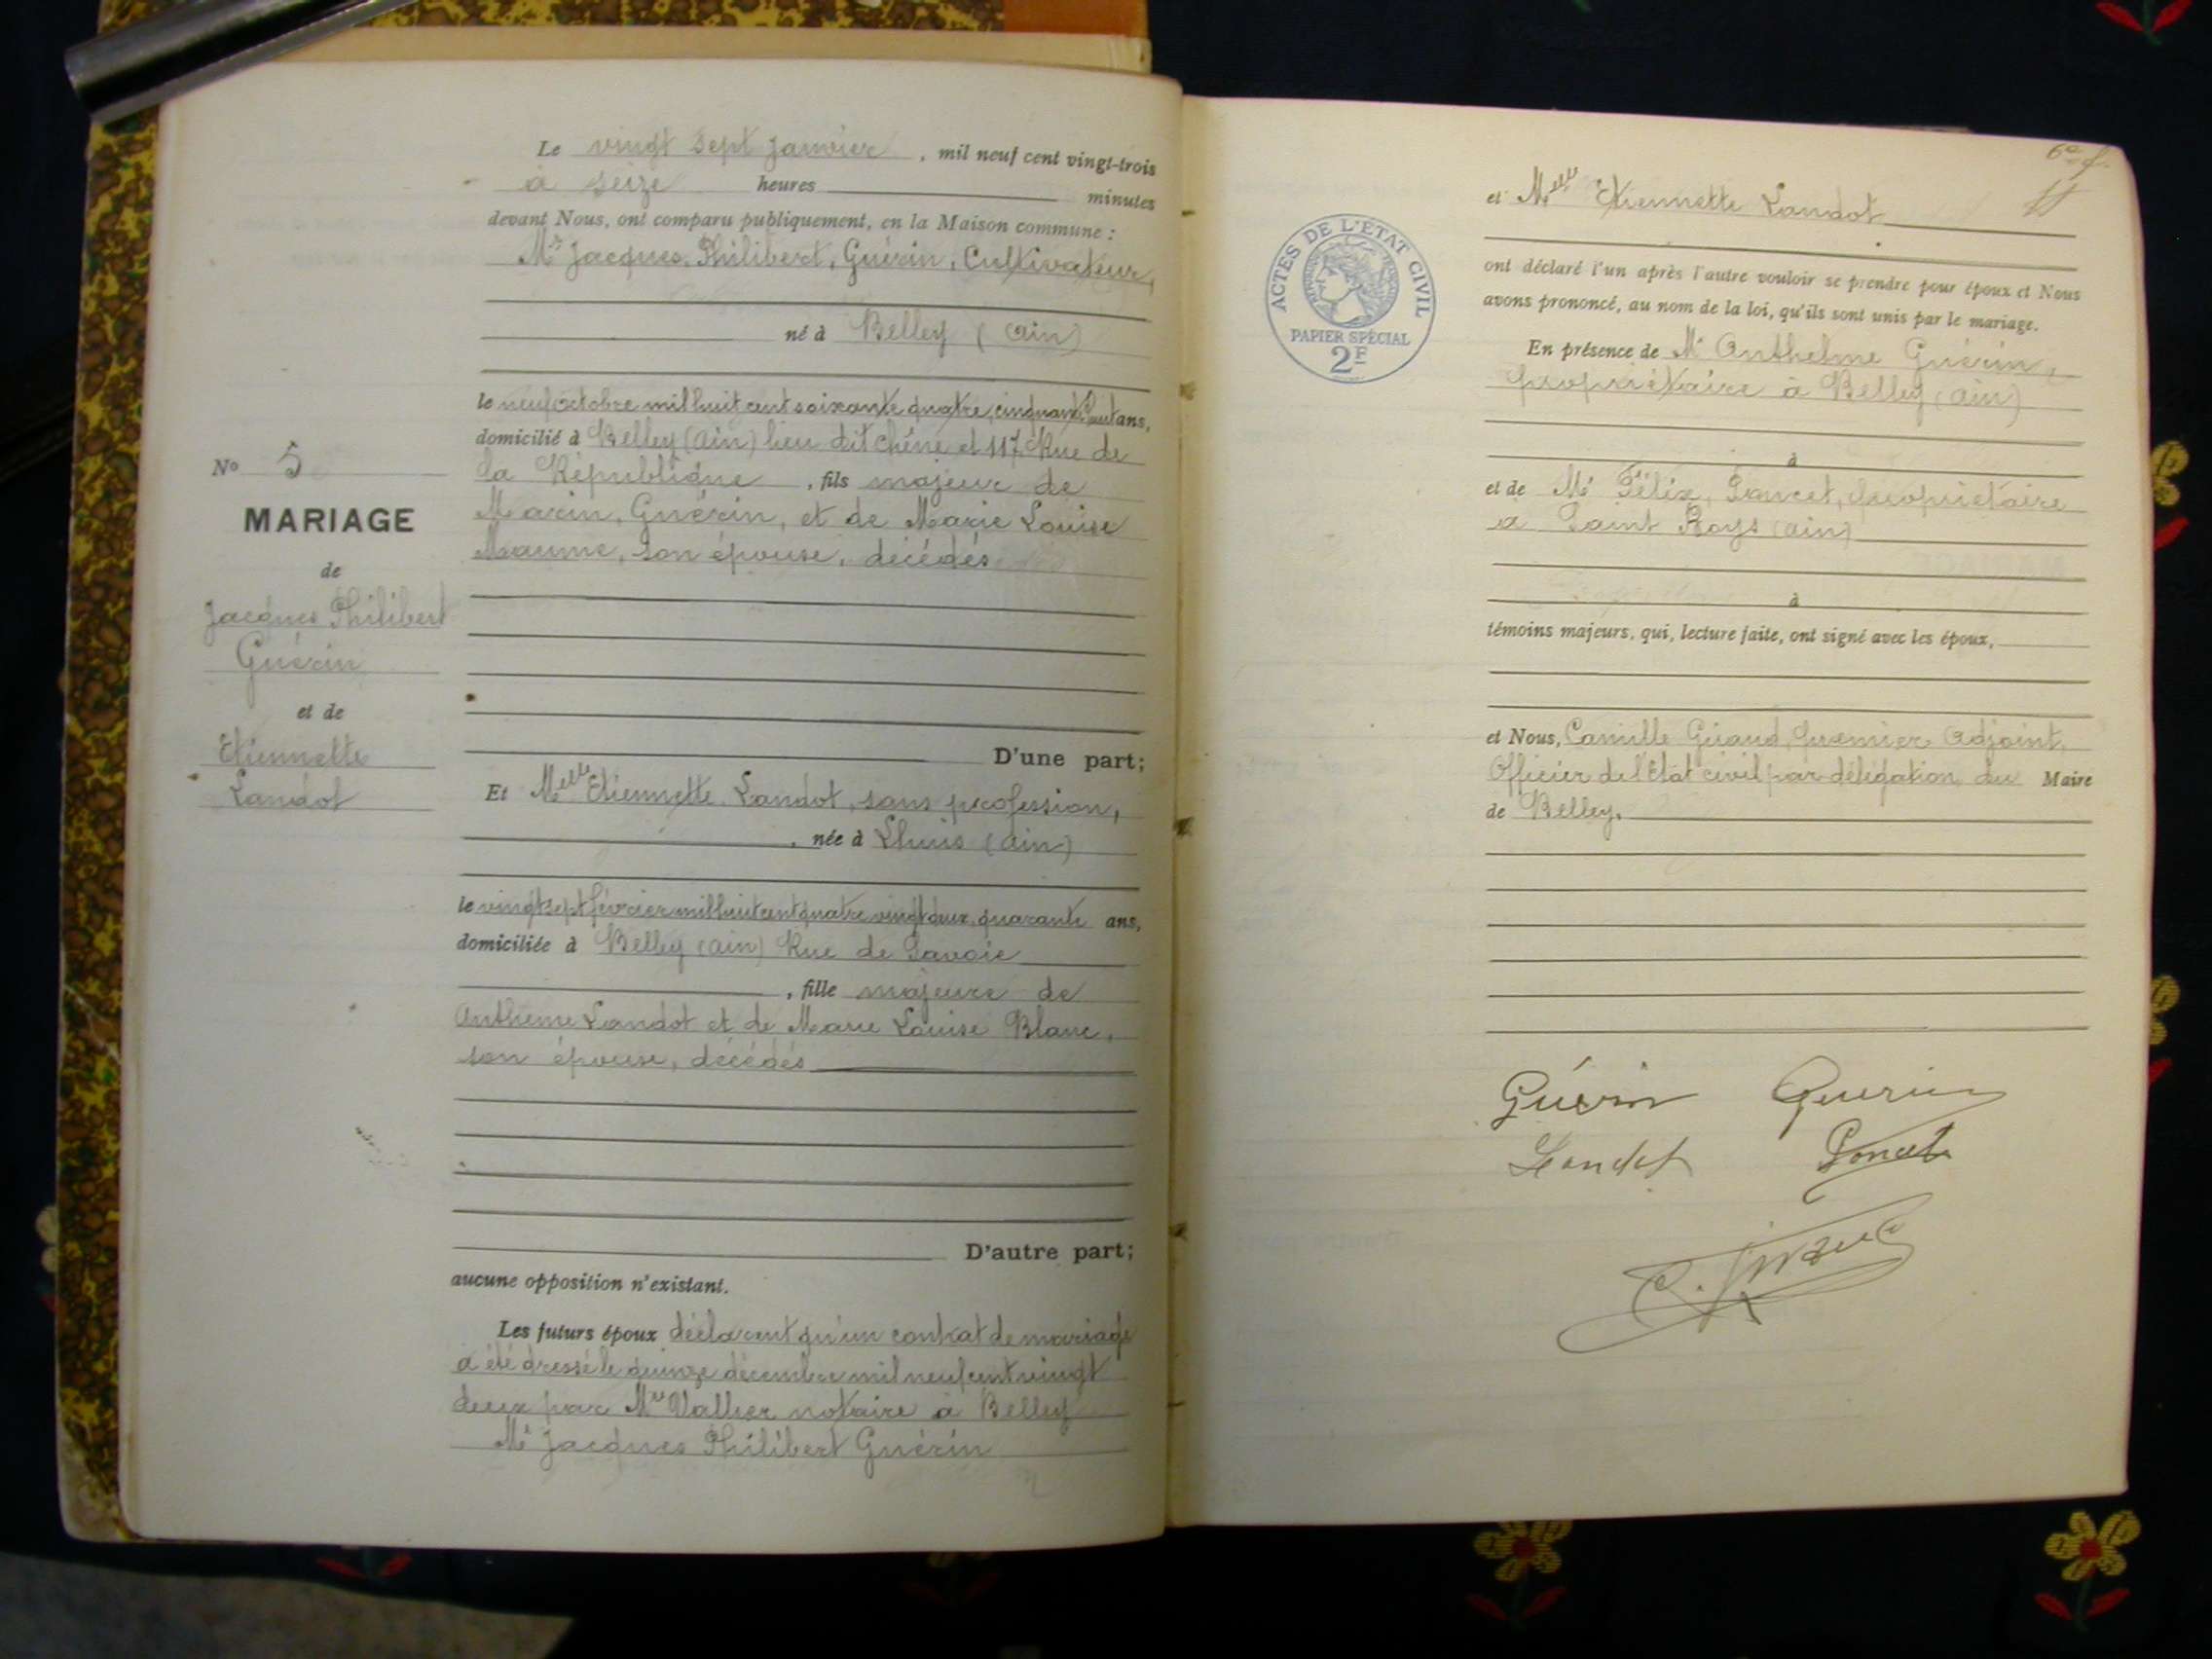 Le vingt sept janvier, mil neuf cent vingt-trois
à seize heures minutes
devant Nous, ont comparu publiquement, en la Maison commune :
Mr Jacques Philibert, Guérin, Cultivateur,
né à Belley (Ain)
le neuf octobre mil huit cent soixante quatre, cinquante huit ans,
domicilié à Belley (Ain) lieu dit Chêne et 117 Rue de
la République, fils majeur de
Marin, Guérin, et de Marie Louise
Maume, son épouse, décédés
No 5
MARIAGE
de
Jacques Philibert
Guérin
et de
Etiennette
Landot
D'une part;
Et Melle Etiennette Landot, sans profession,
, née à Lhuis (Ain)
le vingt sept février mil huit cent quatre vingt deux, quarante ans,
domiciliée à Belley (Ain) Rue de Savoie
, fille majeure de
Anthelme Landot et de Marie Louise Blanc,
son épouse, décédés
D'autre part;
aucune opposition n'existant.
Les futurs époux déclarent qu'un contrat de mariage
a été dressé le quinze décembre mil neuf cent vingt
deux par Me Vallier notaire à Belley
Mr Jacques Philibert Guérin
6e f.
et Melle Etiennette Landot
ACTES DE L'ÉTAT CIVIL
PAPIER SPÉCIAL
2F
ont déclaré l'un après l'autre vouloir se prendre pour époux et Nous
avons prononcé, au nom de la loi, qu'ils sont unis par le mariage.
En présence de Mr Anthelme Guérin,
propriétaire à Belley (Ain)
à
et de Mr Félix, Poncet, propriétaire
à Saint Boys (Ain)
à
témoins majeurs, qui, lecture faite, ont signé avec les époux,
et Nous, Camille Giraud, premier adjoint,
Officier de l'Etat civil par délégation du Maire
de Belley.
Guérin Guerin
Landot Poncet
C. Giraud